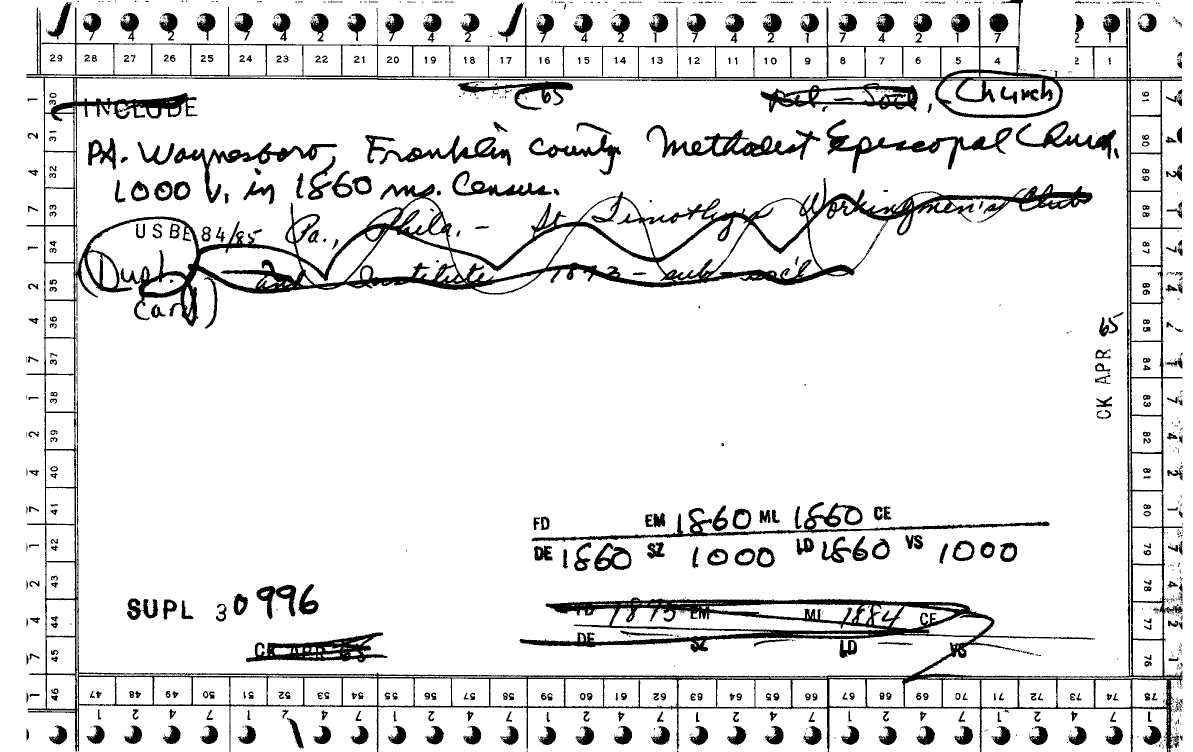 7 4 2 1 7 4 2 1 7 4 2 1 7 4 2 1 7 4 2 1 7 4 2 1
29 28 27 26 25 24 23 22 21 20 19 18 17 16 15 14 13 12 11 10 9 8 7 6 5 4 2 1
INCLUDE 65 Rel. - Soc., Church
PA. Waynesboro, Franklin County Methodist Episcopal Church.
1000 v. in 1860 ms. Census.
USBE 84/85 Pa., Phila. - St Timothy's Workingmen's Club
(Dupl. and Institute 1873 - sub-soc'l
Card)
CK APR 65
FD EM 1860 ML 1860 CE
DE 1860 SZ 1000 LD 1860 VS 1000
SUPL 30996
FD 1873 EM ML 1884 CE
DE SZ LD VS
CK APR 65
30 31 32 33 34 35 36 37 38 39 40 41 42 43 44 45 46
91 90 89 88 87 86 85 84 83 82 81 80 79 78 77 76
47 48 49 50 51 52 53 54 55 56 57 58 59 60 61 62 63 64 65 66 67 68 69 70 71 72 73 74 75